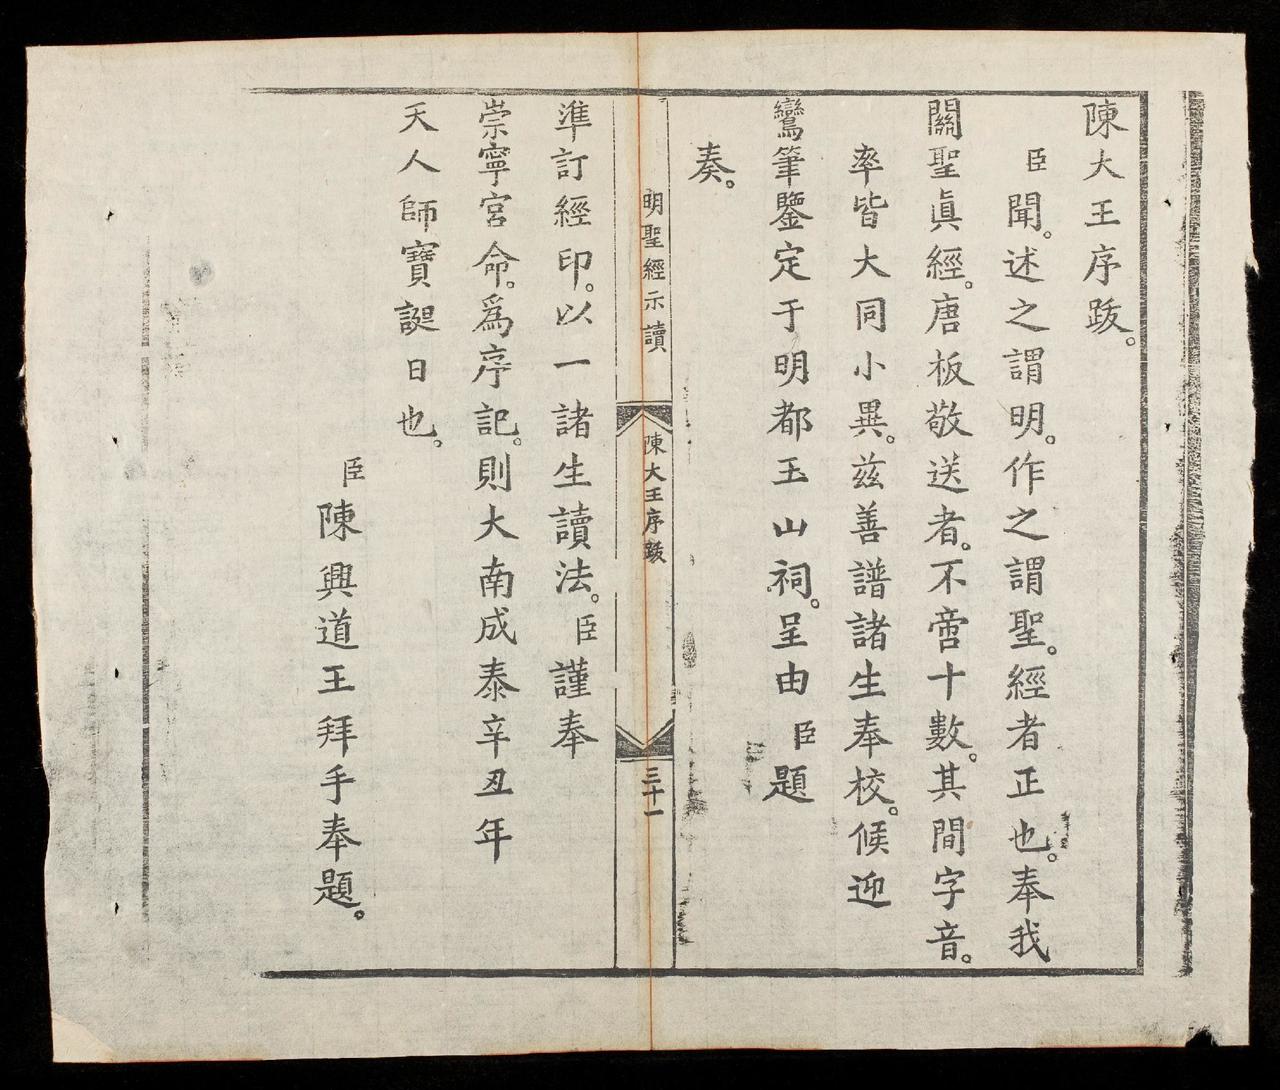 陳大王序跋。
臣聞。述之謂明。作之謂聖。經者正也。奉我
關聖眞經。唐板敬送者。不啻十數。其間字音。
率皆大同小異。茲善譜諸生奉校。候迎
鸞筆鑒定于明都玉山祠。呈由臣題
奏。
明聖經示讀
陳大王序跋
三十一
準訂經印。以一諸生讀法。臣謹奉
崇寧宮命。爲序記。則大南成泰辛丑年
天人師寶誕日也。
臣陳興道王拜手奉題。